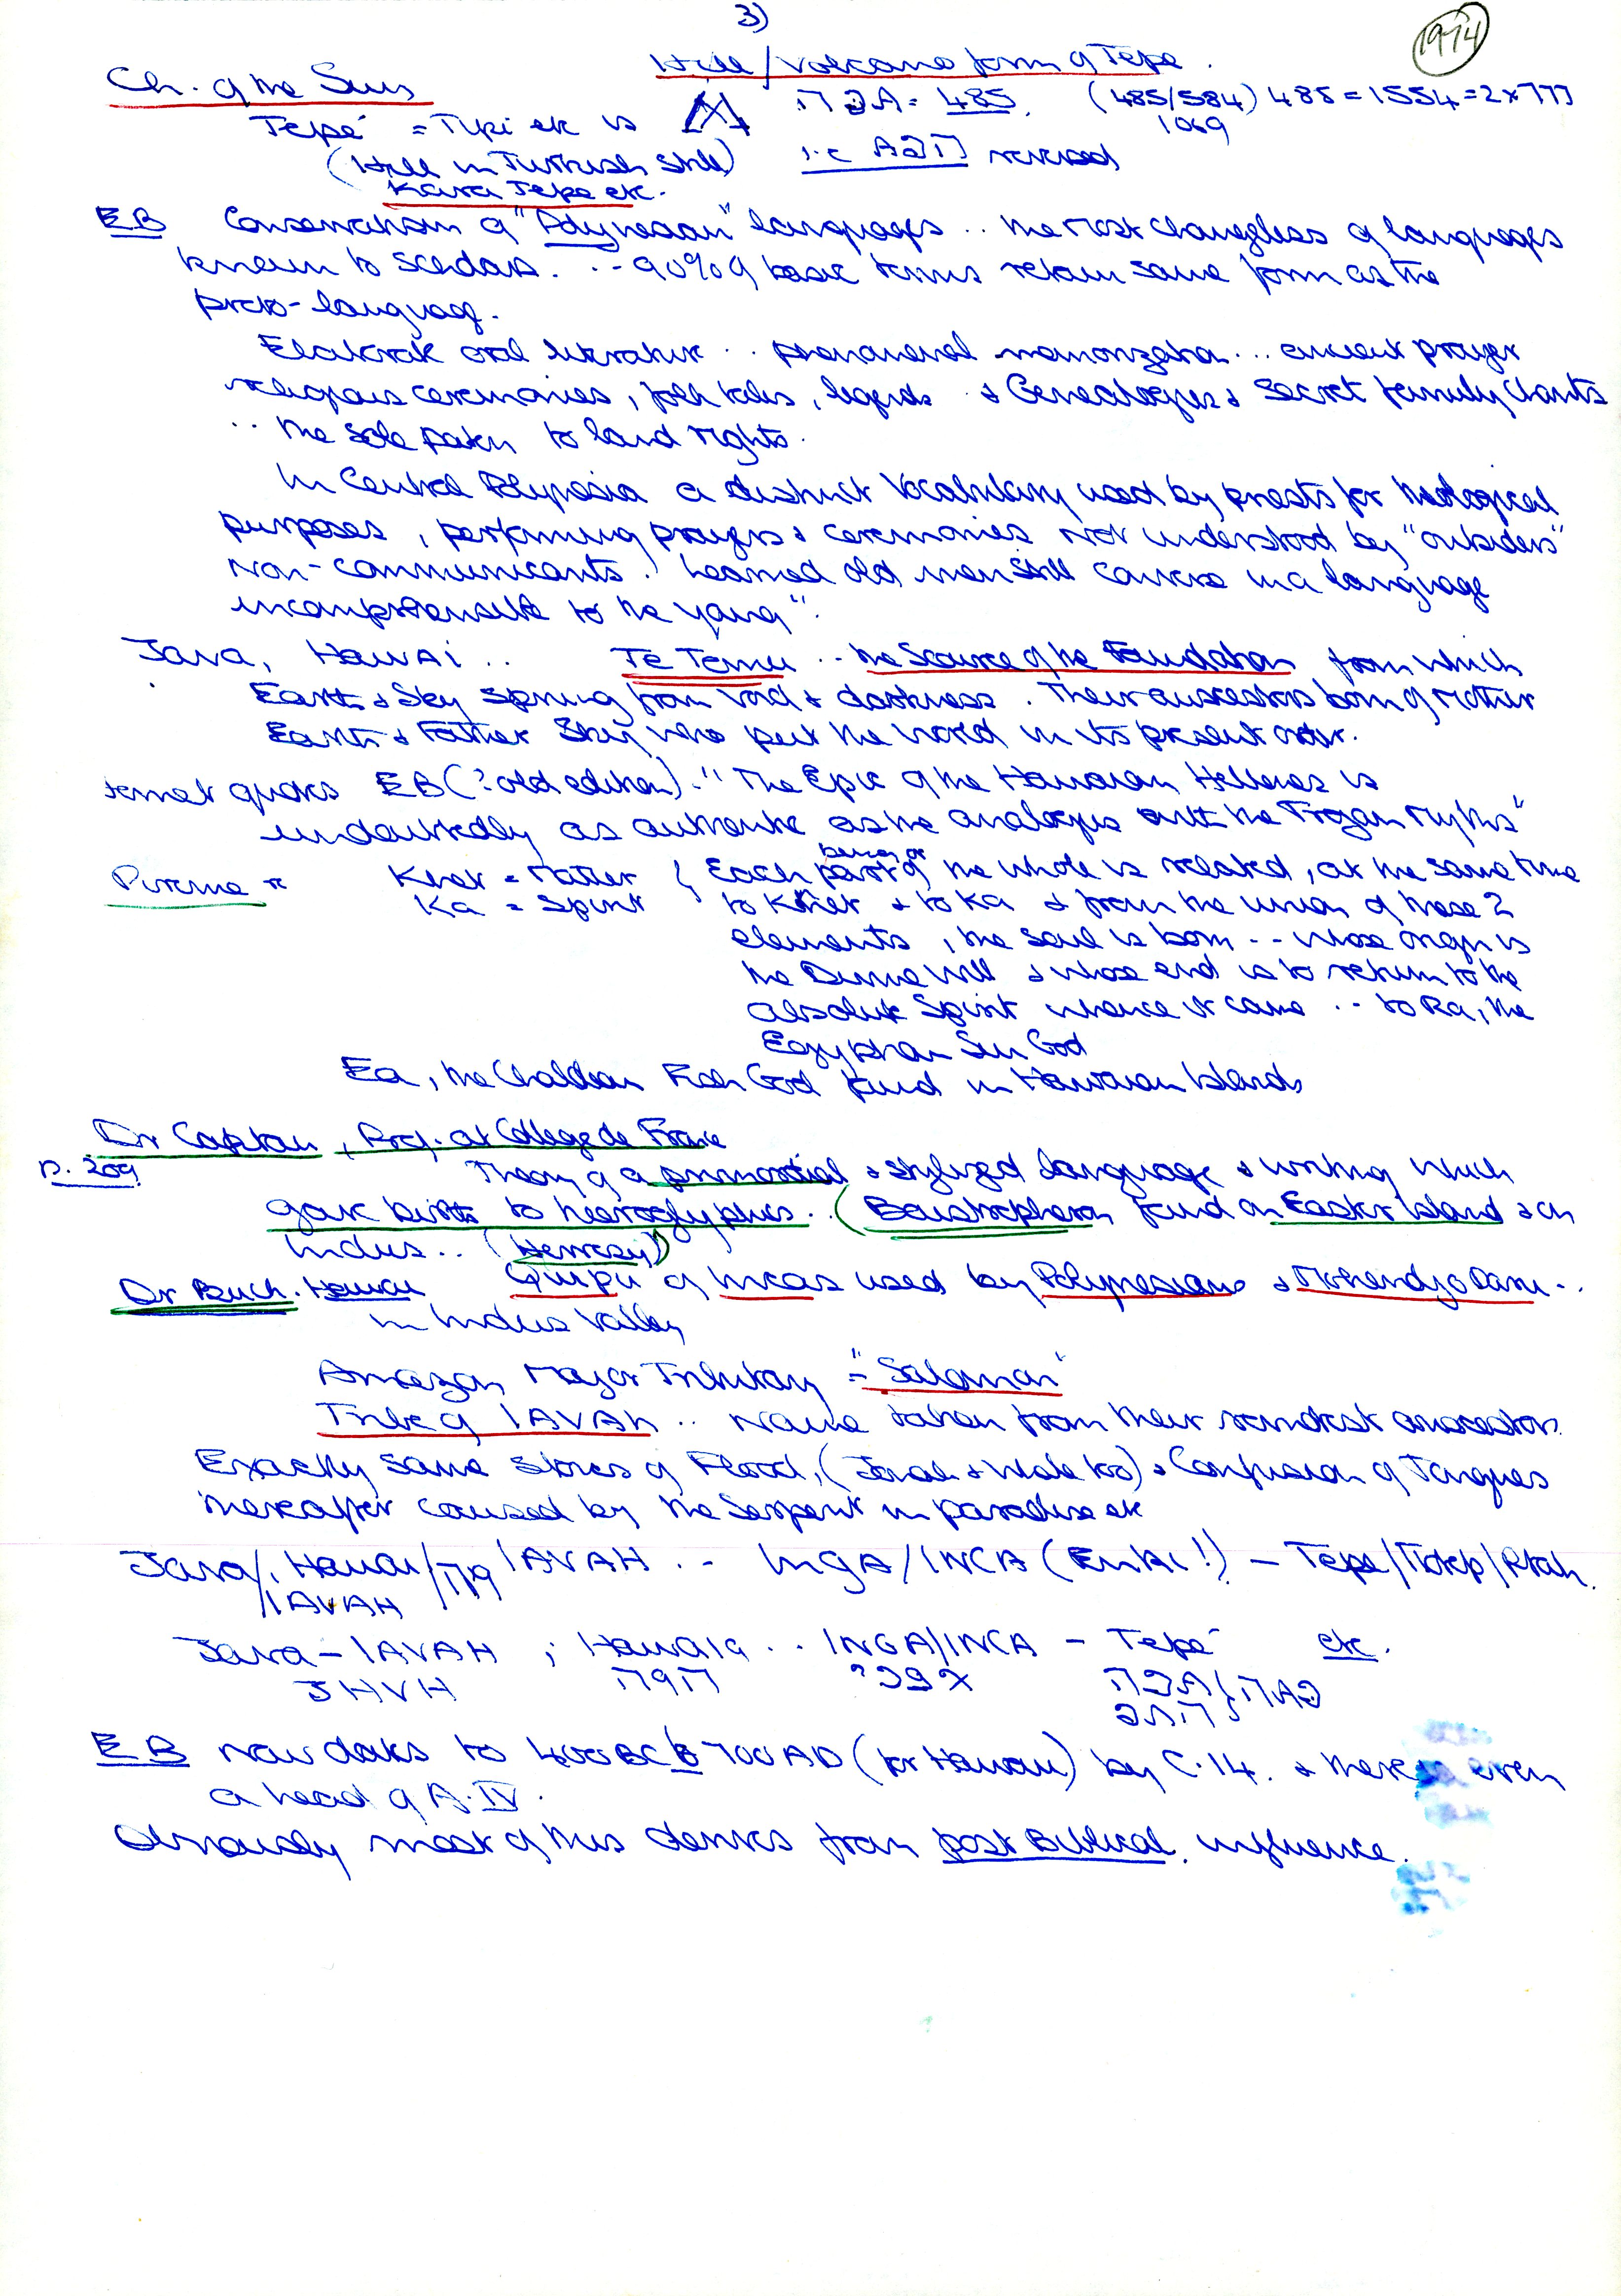 3)
1974
Ch. of the Sun
Hill/Volcano form of Tepe.
Tepé = Tipi etc is
485. (485/584) 485 = 1554 = 2x777
1069
(Hill in Turkish still) i.e reversed
Kara Tepe etc.
EB Conservatism of "Polynesian" languages .. the most changeless of languages
known to scholars. .. 90% of basic terms retain same form as the
proto-language.
Elaborate oral literature .. phenomenal memorization ... ancient prayer
religious ceremonies, folk tales, legends & Genealogies & Secret family Chants
.. the sole path to land rights.
In Central Polynesia a distinct Vocabulary used by priests for theological
purposes, performing prayers & ceremonies not understood by "outsiders"
Non-communicants. Learned old men still converse in a language
incomprehensible to the young".
Java, Hawai .. Te Tumu .. the Source of the Foundation from which
Earth & Sky sprung from void & darkness. Their ancestors born of Mother
Earth & Father Sky who put the world in its present order.
quotes EB (? old edition). "The Epic of the Hawaian Hellenes is
undoubtedly as authentic as the analogies with the Trojan Myths"
Khet = Matter } Each being or part of the whole is related, at the same time
Ka = Spirit to Khet & to Ka & from the union of these 2
elements, the soul is born .. whose origin is
the Divine Will & whose end is to return to the
absolute Spirit whence it came .. to Ra, the
Egyptian Sun God
Ea, the Chaldean Fish God found in Hawaian Islands
Dr Capitan, Prof. at College de France
p. 209 Theory of a primordial & stylized language & writing which
gave birth to hieroglyphics. (Boustrophedon found on Easter Island & on
Indus .. (Hevesy))
Dr Buck. Hawai Quipu of Incas used by Polynesians & Mohendjo Daru ..
in Indus Valley
Amazon Major Tributary = "Salomon"
Tribe of IAVAH .. Name taken from their remotest ancestors.
Exactly same stories of Flood, (Jonah & Whale too) & Confusion of Tongues
thereafter caused by the Serpent in paradise etc
Java/. Hawai/ IAVAH .. INGA/INCA (Enki!) – Tepe/ /Ptah.
/IAVAH
Java – IAVAH ; Hawaia .. INGA/INCA – Tepé etc.
JHVH
EB now dates to 400BC to 700AD (for Hawai) by C.14. & there is even
a head of A.IV.
Obviously most of this derives from post Biblical influence.